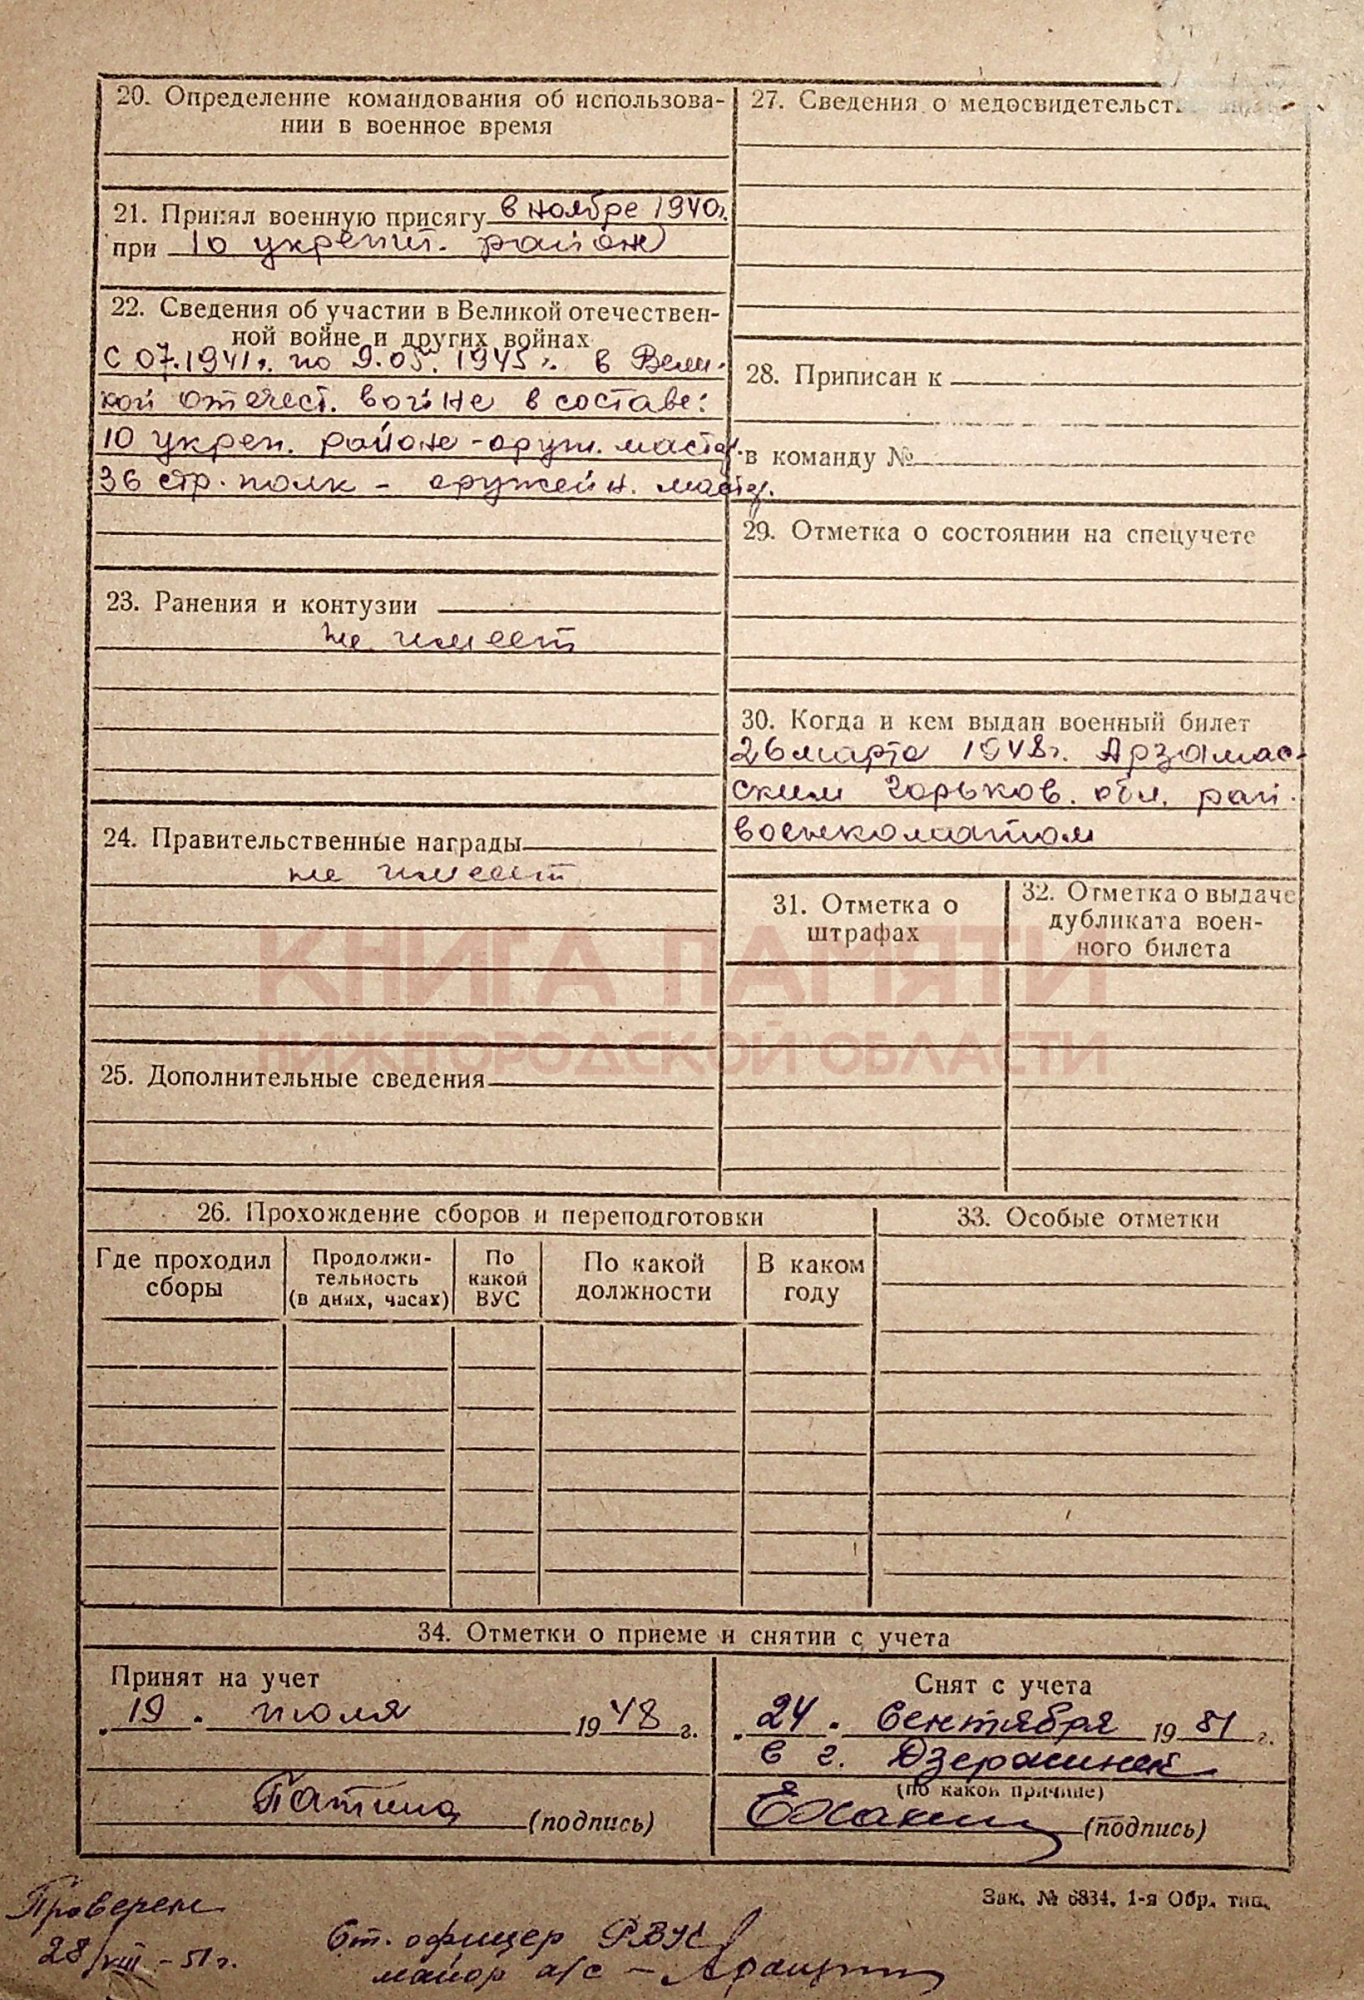 20. Определение командования об использова-
нии в военное время
21. Принял военную присягу в ноябре 1940г.
при 10 укрепит. районе
22. Сведения об участии в Великой отечествен-
ной войне и других войнах
С 07.1941г. по 9.05.1945г. в Вели-
кой отечест. войне в составе:
10 укреп. районе - оруж. мастер.
36 стр. полк - оружейн. мастер.
23. Ранения и контузии
не имеет
24. Правительственные награды
не имеет
25. Дополнительные сведения
27. Сведения о медосвидетельст
28. Приписан к
в команду №
29. Отметка о состоянии на спецучете
30. Когда и кем выдан военный билет
26 марта 1948г. Арзамас-
ским Горьков. обл. рай.
военкоматом
31. Отметка о
штрафах
32. Отметка о выдаче
дубликата воен-
ного билета
КНИГА ПАМЯТИ
НИЖЕГОРОДСКОЙ ОБЛАСТИ
26. Прохождение сборов и переподготовки
Где проходил
сборы
Продолжи-
тельность
(в днях, часах)
По
какой
ВУС
По какой
должности
В каком
году
33. Особые отметки
34. Отметки о приеме и снятии с учета
Принят на учет
„19" июля 1948 г.
(подпись)
Снят с учета
„24" Сентября 1951 г.
в г. Дзержинск
(по какой причине)
(подпись)
Зак. № 6834. 1-я Обр. тип.
Проверен
28/VIII-51г.
Ст. офицер РВК
майор а/с -